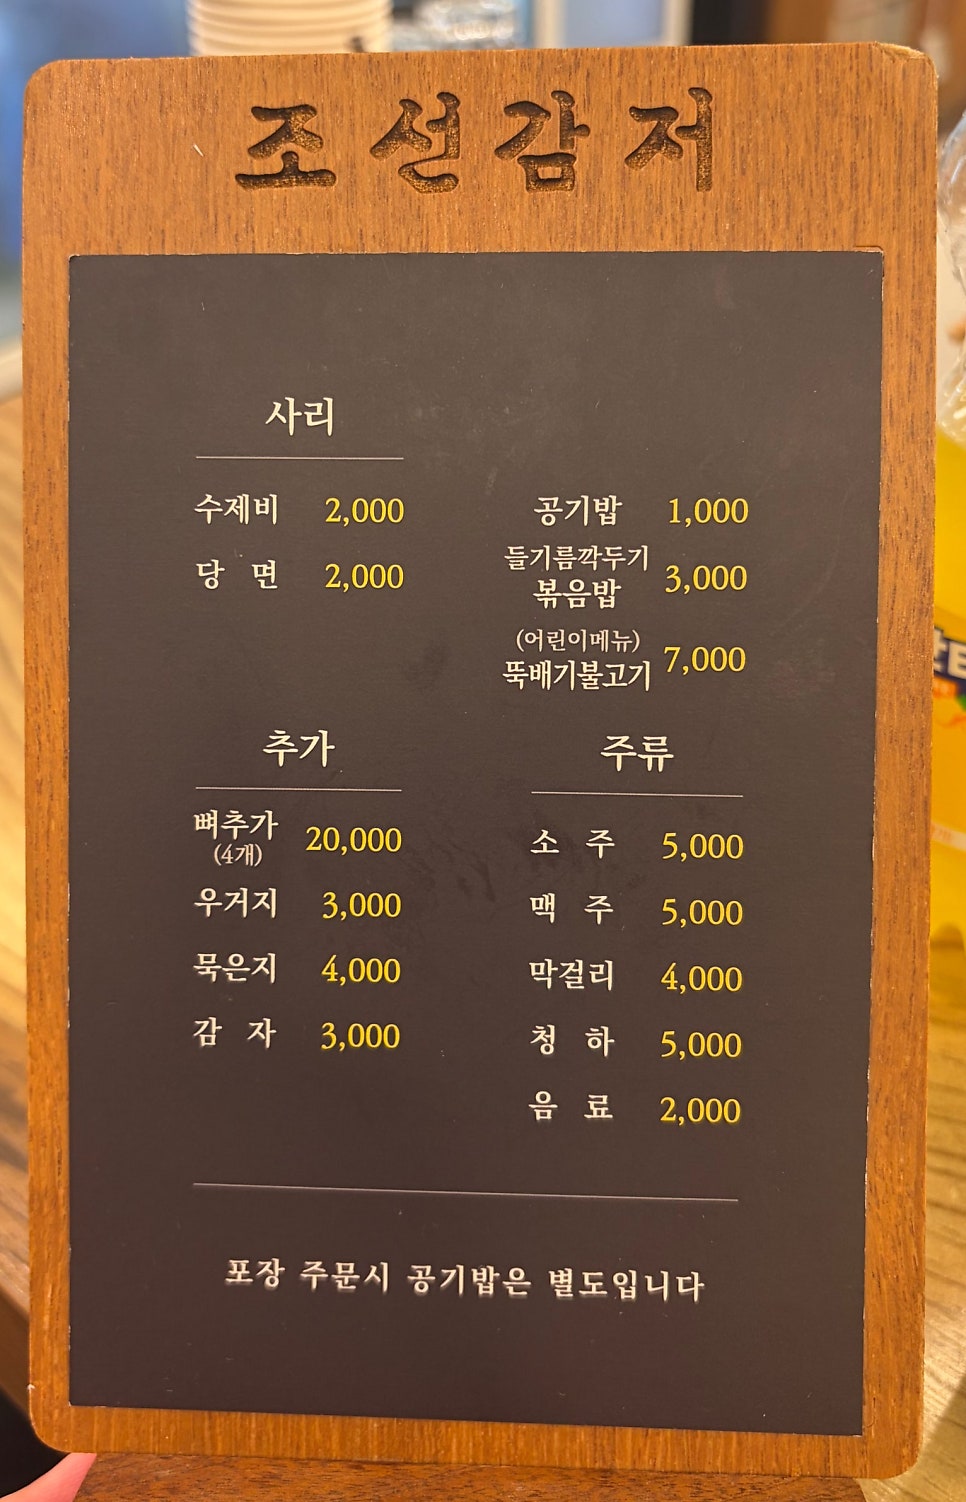 조선감저
사리
수제비 2,000
당 면 2,000
공기밥 1,000
들기름깍두기
볶음밥 3,000
(어린이메뉴)
뚝배기불고기 7,000
추가
뼈추가 20,000
(4개)
우거지 3,000
묵은지 4,000
감 자 3,000
주류
소 주 5,000
맥 주 5,000
막걸리 4,000
청 하 5,000
음 료 2,000
포장 주문시 공기밥은 별도입니다